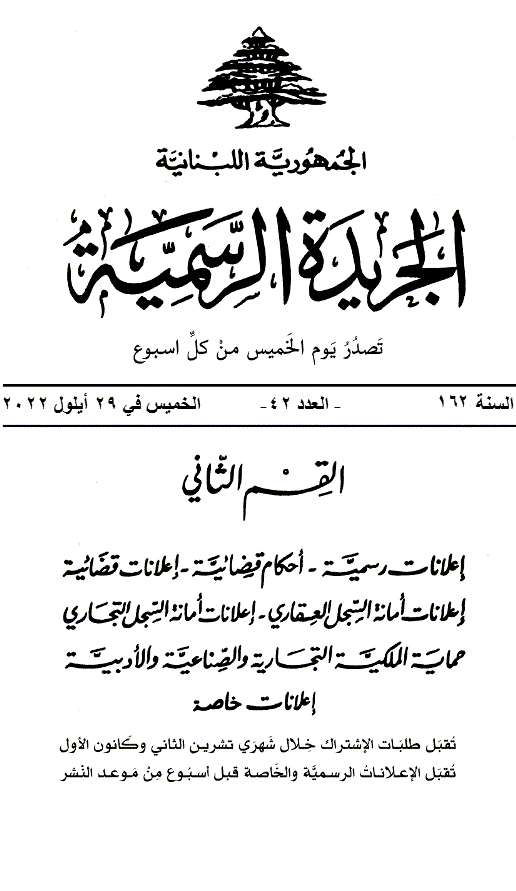 الجمهورية اللبنانية
الجريدة الرسمية
تَصدُرُ يَوم الخَميس مِنْ كلِّ اسبوع
السنة ١٦٢ - العدد ٤٢ - الخميس في ٢٩ أيلول ٢٠٢٢
القِسْم الثّاني
إعلانات رسميَّة - أحكام قضائيَّة - إعلانات قضائية
إعلانات أمانة السِّجل العقاري - إعلانات أمانة السِّجل التجاري
حماية الملكيَّة التجارية والصِّناعيَّة والأدبيَّة
إعلانات خاصة
تُقبَل طلبَات الإشتراك خِلال شَهرَي تشرين الثاني وكَانون الأول
تُقبَل الإعلانَاتُ الرسميَّة والخَاصة قبل أسبُوع مِنْ مَوعد النَشر